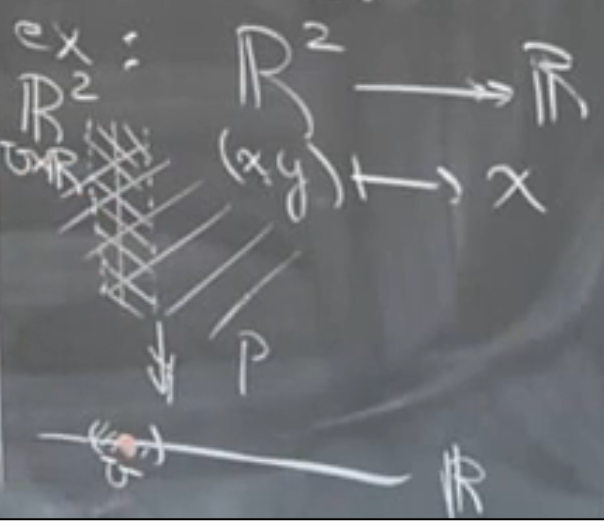 ex :
ℝ² ↠ ℝ
(x,y) ↦ x
ℝ²
U×ℝ
p
U
ℝ